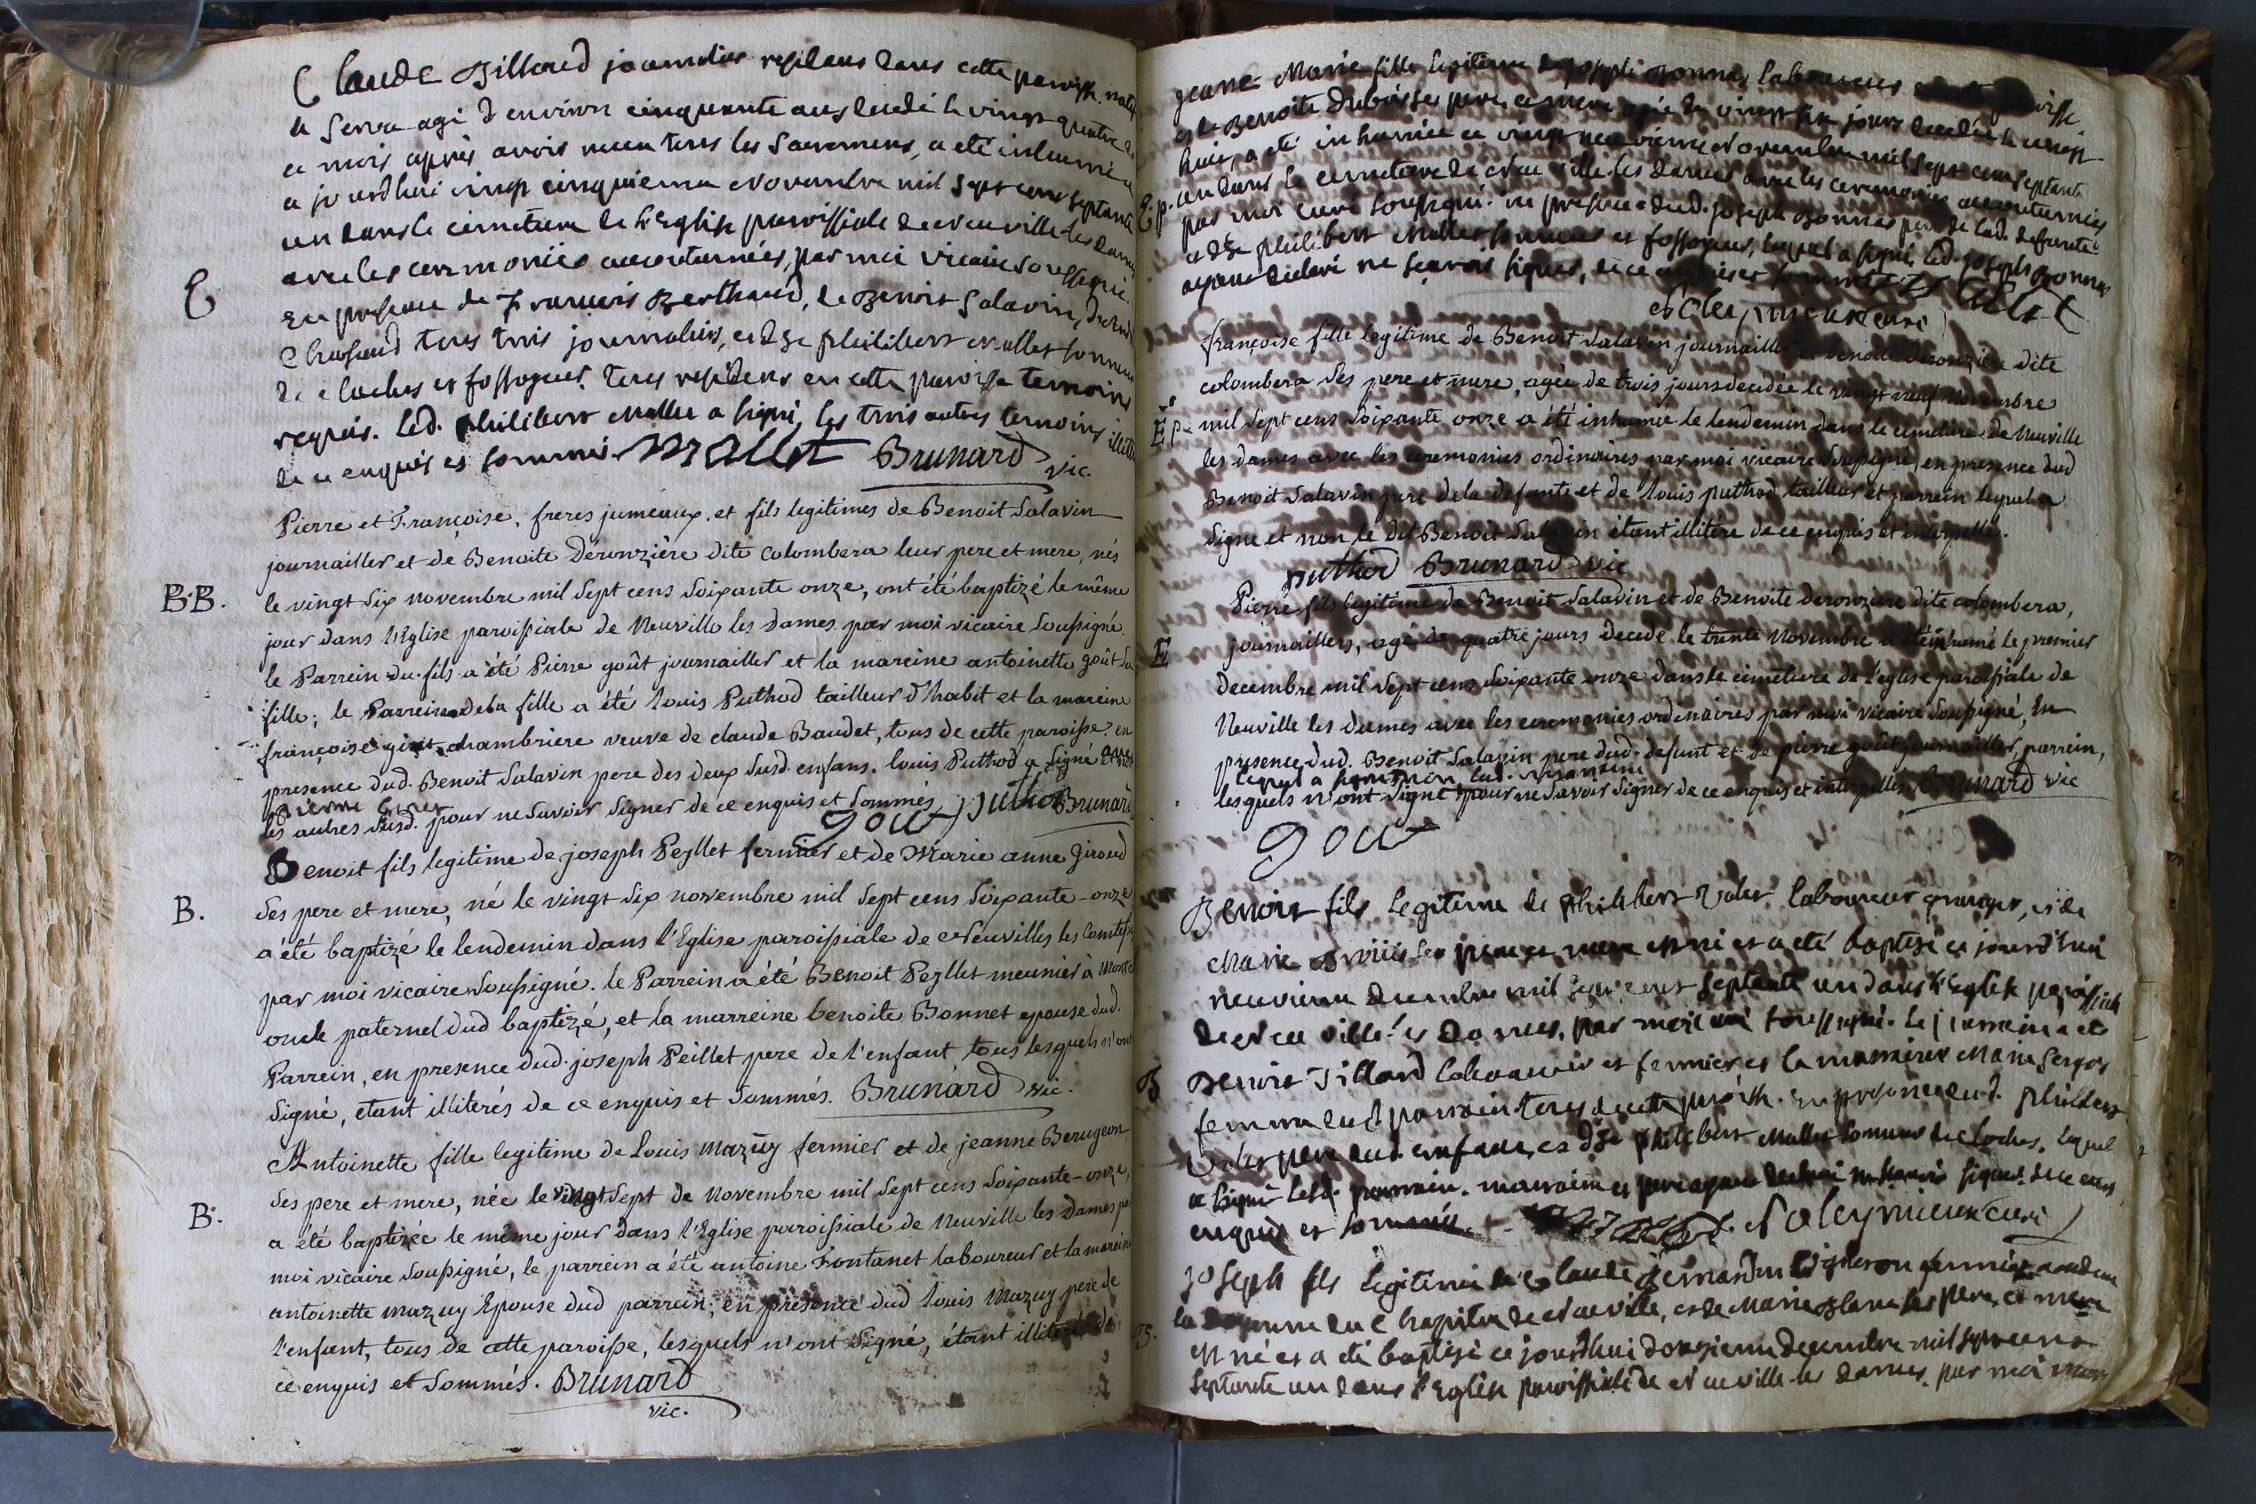 Claude Billoud journalier residant dans cette paroisse natif
de Serva agé d'environ cinquante ans decedé le vingt quatre de
ce mois après avoir receu tous les Sacremens, a eté inhumé
ce jourdhui vingt cinquieme Novembre mil sept cens septante
un dans le cimetiere de l'Eglise paroissiale de Neuville les dames
avec les ceremonies accoutumées, par moi vicaire soussigné.
E
En presence de François Berthaud, de Benoit Salavin,
Chafaud tous trois journaliers, et de Philibert Mallet sonneur
de cloches et fossoyeur tous residens en cette paroisse temoins
requis. Led. philibert Mallet a signé, les trois autres temoins
de ce enquis et sommés. Mallet Brunard
vic.
Pierre et Françoise, freres jumeaux, et fils legitimes de Benoit Salavin
journailler et de Benoite Deronzière dite Colombera leur pere et mere, nés
B.B. le vingt six novembre mil sept cens soixante onze, ont été baptizé le même
jour dans l'Eglise paroissiale de Neuville les Dames par moi vicaire soussigné.
le Parrein du fils a été Pierre goût journailler et la mareine antoinette goût sa
fille; le Parrein de la fille a été Louis Puthod tailleur d'habit et la mareine
françoise chambriere veuve de claude Baudet, tous de cette paroisse, en
presence dud. Benoit Salavin pere des deux susd. enfans. louis Puthod a signé avec
pierre
les autres susd. pour ne savoir signer de ce enquis et sommés. gout puthod Brunard
Benoit fils legitime de joseph Peyllet fermier et de Marie anne Giroud
B. ses pere et mere, né le vingt six novembre mil sept cens soixante-onze
a été baptizé le lendemin dans l'Eglise paroissiale de Neuvilles les Comtesse
par moi vicaire soussigné. le Parrein a été Benoit Peyllet meunier à
oncle paternel dud baptizé, et la marreine benoite Bonnet epouse dud.
Parrein, en presence dud. joseph Peillet pere de l'enfant tous lesquels n'ont
signé, etant illiterés de ce enquis et sommés. Brunard vic.
Antoinette fille legitime de Louis Mazuy fermier et de jeanne Berugeon
ses pere et mere, née le vingt sept de novembre mil sept cens soixante-onze,
B. a été baptizée le même jour dans l'Eglise paroissiale de Neuville les Dames par
moi vicaire soussigné, le parrein a été antoine Fontanet laboureur et la mareine
antoinette mazuy Epouse dud parrein; en presence dud louis Mazuy pere de
l'enfant, tous de cette paroisse, lesquels n'ont signé, étant illiterés de
ce enquis et sommés. Brunard
vic.
jeanne Marie fille legitime de joseph Bonnet laboureur
et de Benoite Duboisse ses pere et mere agée de vingt six jours decedée le vingt
huit, a eté inhumée ce vingt neuvieme Novembre mil sept cens septante
E.p. un dans le cimetiere de Neuville les dames avec les ceremonies accoutumées
par moi curé soussigné. en presence dud. joseph Bonnet pere de lad. defunte
et de philibert Mallet sonneur et fossoyeur, lequel a signé, led. joseph Bonnet
ayant declaré ne sçavoir signer, de ce enquis et sommé Mallet
curé
françoise fille legitime de Benoit Salavin journailler et benoite deronzière dite
colombera ses pere et mere, agée de trois jours decedée le vingt neuf novembre
E.p. mil sept cens soixante onze a été inhumée le lendemin dans le cimetiere de Neuville
les dames avec les ceremonies ordinaires par moi vicaire soussigné, en presence dud
Benoit Salavin pere de la defunte et de louis puthod tailleur et parrein lequel a
signé et non le dit Benoit Salavin étant illitére de ce enquis et interpellé.
puthod Brunard vic
Pierre fils legitime de Benoit Salavin et de Benoite deronziere dite colombera,
E journaillers, agé de quatre jours decedé le trente novembre a été inhumé le premier
decembre mil sept cens soixante onze dans le cimetiere de l'église paroissiale de
Neuville les dames avec les ceremonies ordinaires par moi vicaire soussigné, En
presence dud. Benoit Salavin pere dud. defunt et de pierre goût journailler, parrein,
lequel a signé non led.
lesquels n'ont signé pour ne savoir signer de ce enquis et interpellés Brunard vic
gout
Benoit fils legitime de philibert laboureur granger, et de
Marie ses pere et mere est né et a eté baptisé ce jourd'hui
neuvieme decembre mil sept cens septante un dans l'Eglise paroissiale
de Neuville les Dames, par moi curé soussigné. le parrein a eté
B Benoit Tilland laboureur et fermier et la marraine Marie
femme dud parrain tous de cette paroisse. en presence dud. philibert
pere dud. enfant, et de philibert Mallet sonneur de cloches, lequel
a signé lesd. parrain. marraine et pere ayant declaré ne sçavoir signer de ce
enquis et sommés. curé
joseph fils legitime de Claude vigneron fermier
la du Chapitre de Neuville, et de Marie Blanc ses pere et mere
B. est né et a eté baptisé ce jourdhui douzieme decembre mil sept cens
septante un dans l'Eglise paroissiale de Neuville les dames, par moi